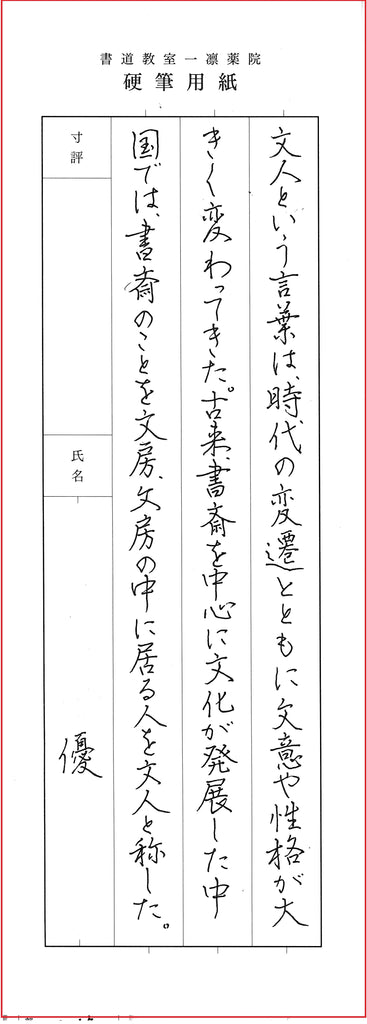 書道教室一凛薬院
硬筆用紙
文人という言葉は、時代の変遷とともに文意や性格が大
きく変わってきた。古来、書斎を中心に文化が発展した中
国では、書斎のことを文房、文房の中に居る人を文人と称した。
寸評
氏名
優